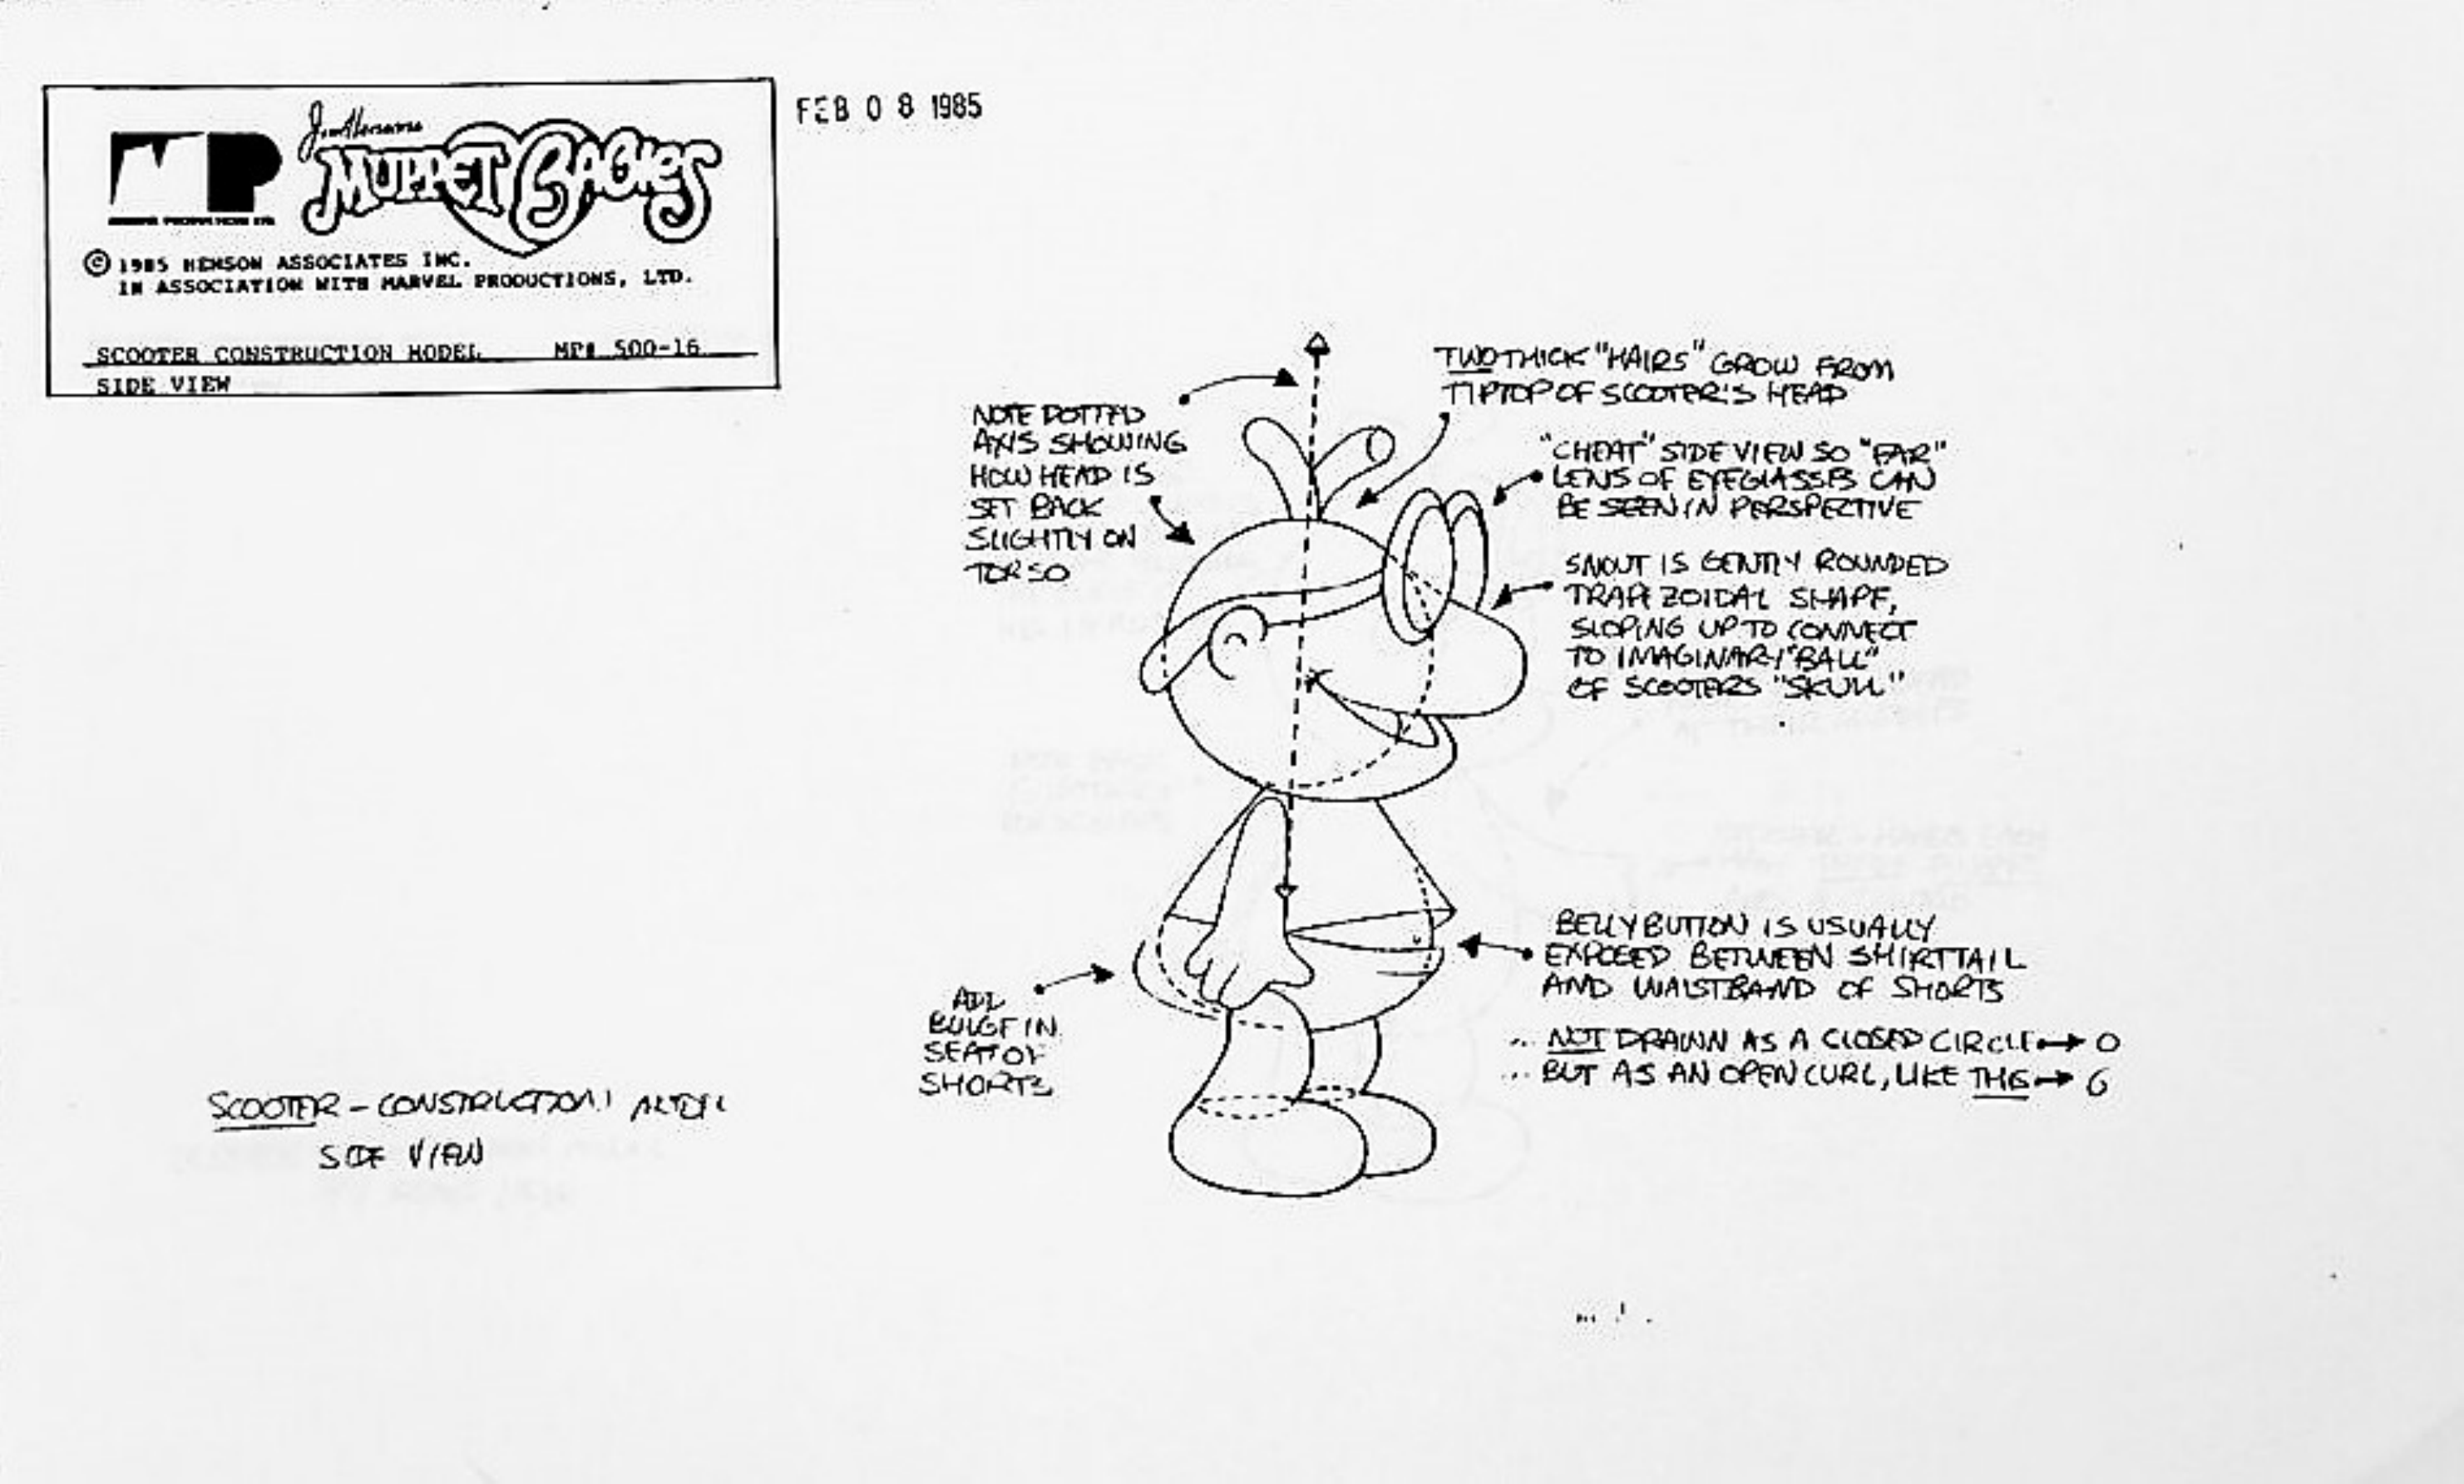 MP
Jim Henson's
MUPPET BABIES
© 1985 HENSON ASSOCIATES INC.
IN ASSOCIATION WITH MARVEL PRODUCTIONS, LTD.
SCOOTER CONSTRUCTION MODEL MP# 500-16
SIDE VIEW
FEB 08 1985
NOTE DOTTED
AXIS SHOWING
HOW HEAD IS
SET BACK
SLIGHTLY ON
TORSO
TWO THICK "HAIRS" GROW FROM
TIPTOP OF SCOOTER'S HEAD
"CHEAT" SIDE VIEW SO "FAR"
LENS OF EYEGLASSES CAN
BE SEEN IN PERSPECTIVE
SNOUT IS GENTLY ROUNDED
TRAPEZOIDAL SHAPE,
SLOPING UP TO CONNECT
TO IMAGINARY "BALL"
OF SCOOTERS "SKULL"
BELLYBUTTON IS USUALLY
EXPOSED BETWEEN SHIRTTAIL
AND WAISTBAND OF SHORTS
... NOT DRAWN AS A CLOSED CIRCLE → O
... BUT AS AN OPEN CURL, LIKE THIS → 6
ADD
BULGE IN
SEAT OF
SHORTS
SCOOTER - CONSTRUCTION MODEL
SIDE VIEW